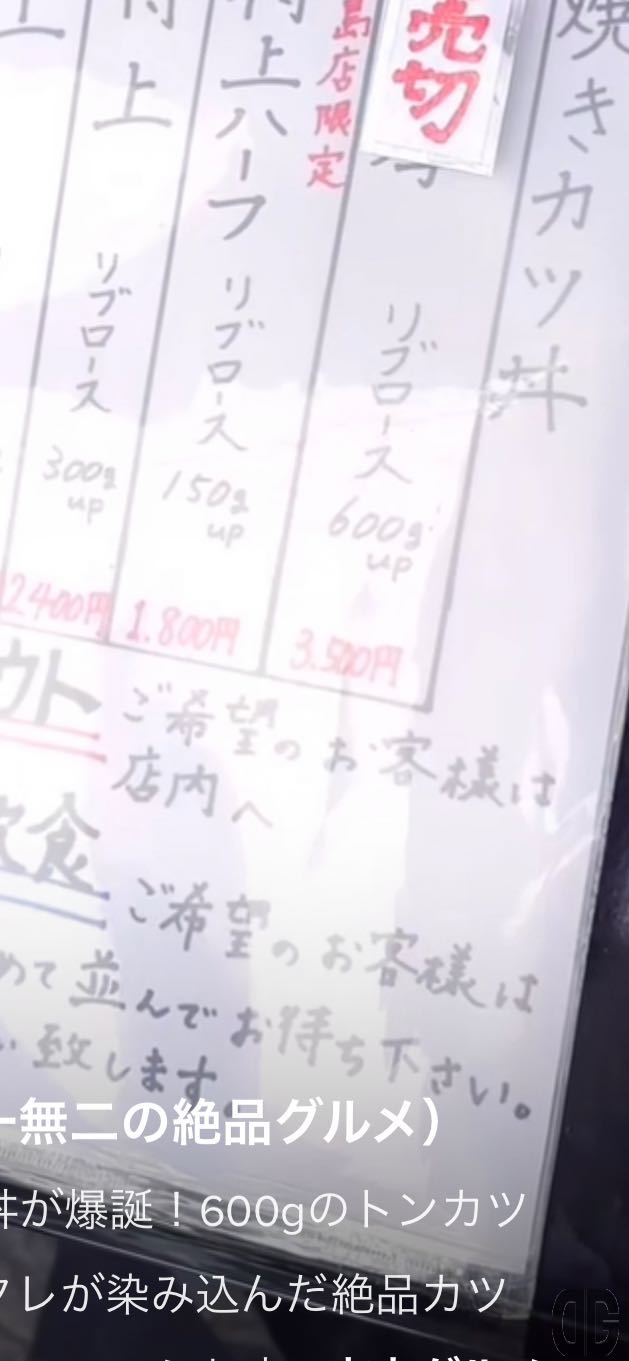 焼きカツ丼
売切
リブロース
600g
up
3.500円
島店限定
上ハーフ
リブロース
150g
up
1.800円
上
リブロース
300g
up
2400円
ウト
ご希望のお客様は
店内へ
飲食
ご希望のお客様は
めて並んでお待ち下さい。
致します。
一無二の絶品グルメ）
丼が爆誕！600gのトンカツ
タレが染み込んだ絶品カツ